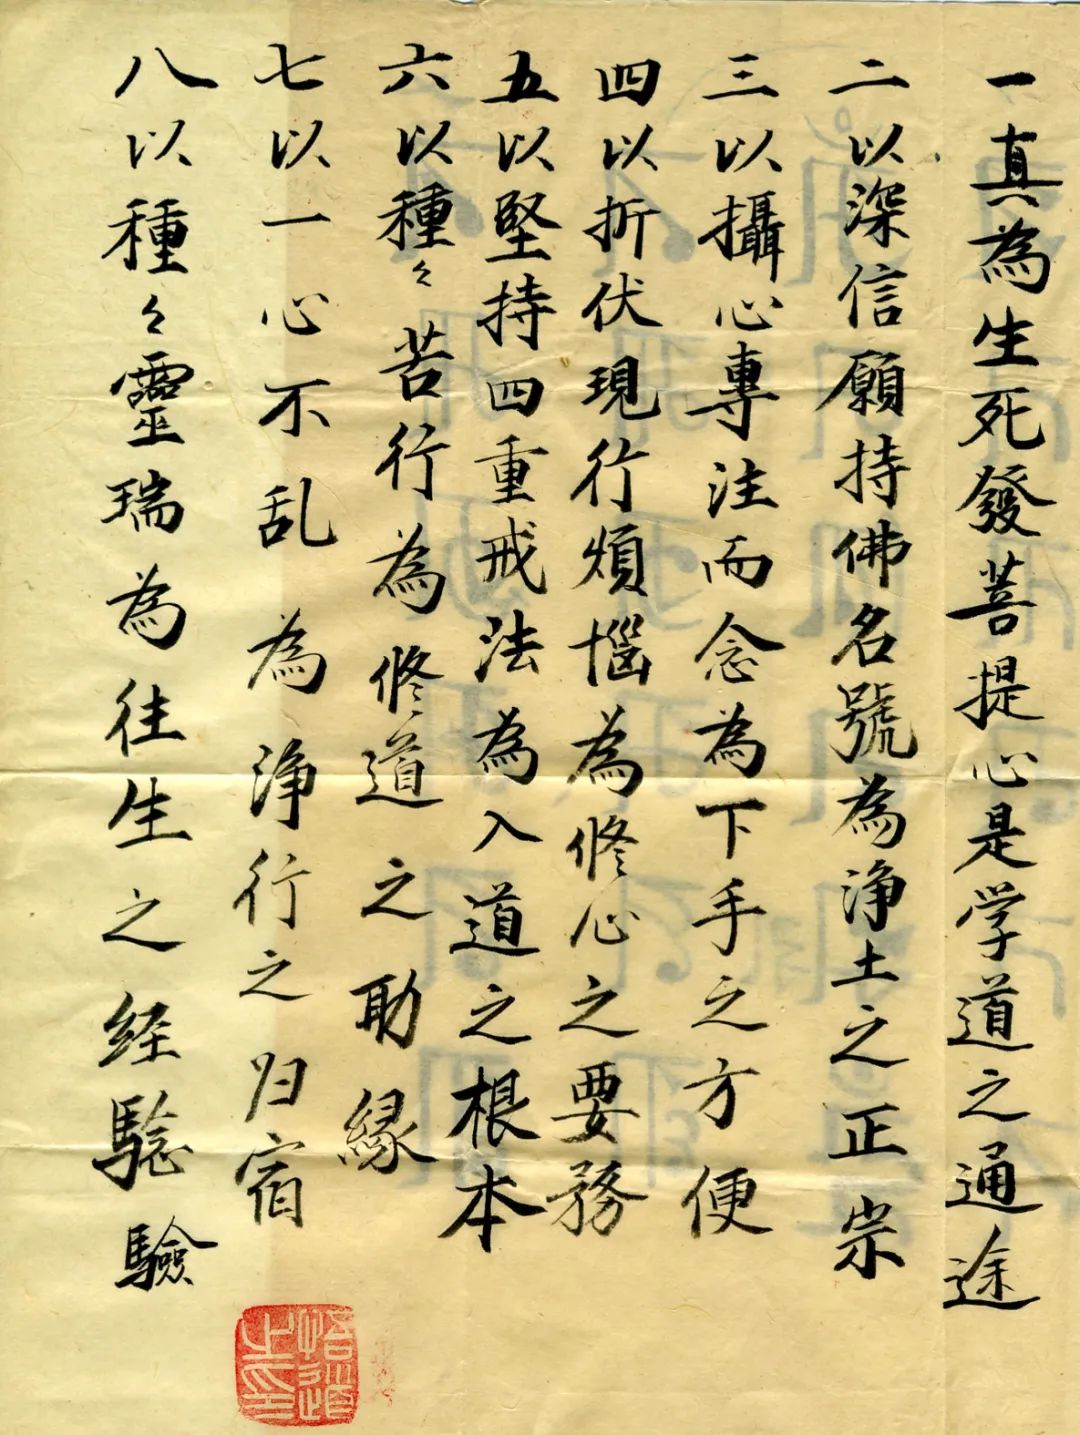 一真為生死發菩提心是学道之通途
二以深信願持佛名號為浄土之正宗
三以攝心專注而念為下手之方便
四以折伏現行煩惱為修心之要務
五以堅持四重戒法為入道之根本
六以種々苦行為修道之助緣
七以一心不乱為浄行之归宿
八以種々靈瑞為往生之経騐驗
悟道之印